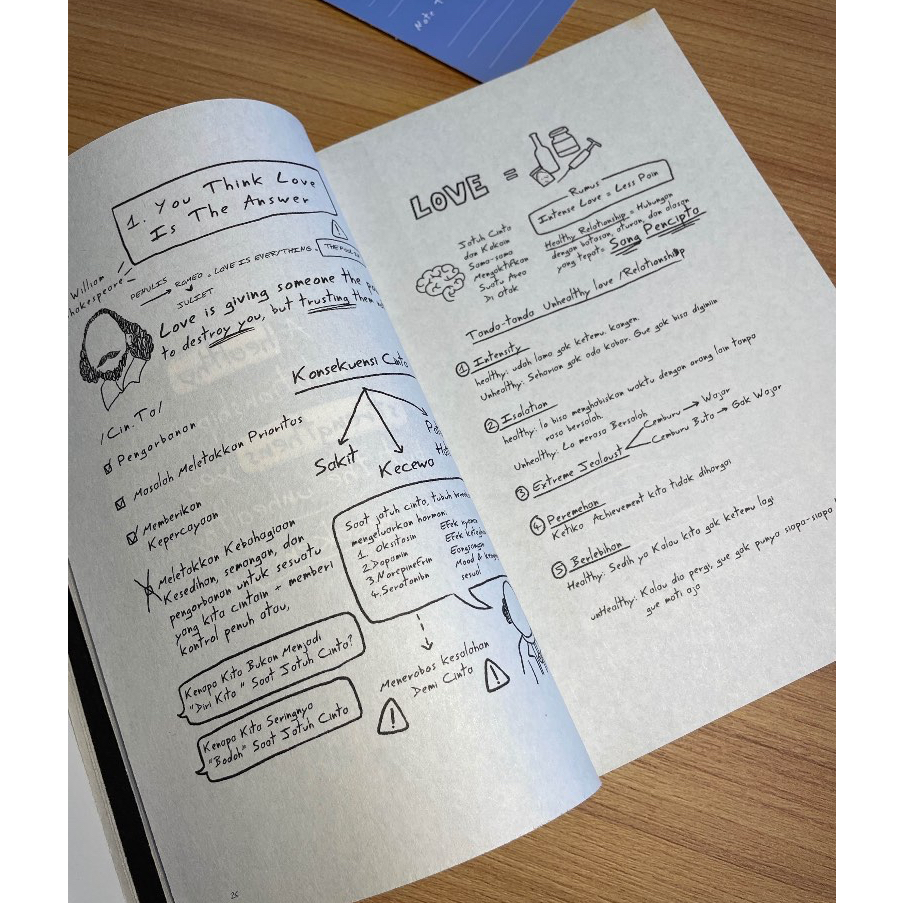 Note
1. You Think Love
Is The Answer
William
Shakespeare
PENULIS
ROMEO
JULIET
= LOVE IS EVERYTHING.
Love is giving someone the
to destroy you, but trusting them
Konsekuensi Cinta
Sakit
Kecewa
/Cin.Ta/
Pengorbanan
Masalah Meletakkan Prioritas
Memberikan
Kepercayaan
Meletakkan Kebahagiaan
Kesedihan, semangan, dan
pengorbanan untuk sesuatu
yang kita cintain + memberi
kontrol penuh atau,
Saat jatuh cinta, tubuh
mengeluarkan hormon:
1. Oksitosin
2. Dopamin
3. Norepinefrin
4. Serotonibn
Efek
Efek
Mood &
sexual
Kenapa Kita Bukan Menjadi
"Diri Kita" Saat Jatuh Cinta?
Kenapa Kita Seringnya
"Bodoh" Saat Jatuh Cinta
Menerobos Kesalahan
Demi Cinta
LOVE =
Rumus
Intense Love = Less Pain
Jatuh Cinta
dan Kokain
Sama-sama
Mengaktifkan
Suatu Area
Di otak
Healthy Relationship = Hubungan
dengan batasan, aturan, dan alasan
yang tepat= Sang Pencipta
Tanda-tanda Unhealthy love/Relationship
1 Intensity
healthy: udah lama gak ketemu, kangen.
Unhealthy: Seharian gak ada kabar. Gue gak bisa diginiin
2 Isolation
healthy: lo bisa menghabiskan waktu dengan orang lain tanpa
rasa bersalah.
Unhealthy: Lo merasa Bersalah
3 Extreme Jealoust
Cemburu → Wajar
Cemburu Buta → Gak Wajar
4 Peremehan
Ketika Achievement kita tidak dihargai
5 Berlebihan
Healthy: Sedih ya Kalau kita gak ketemu lagi
unHealthy: Kalau dia pergi, gue gak punya siapa-siapa
gue mati aja